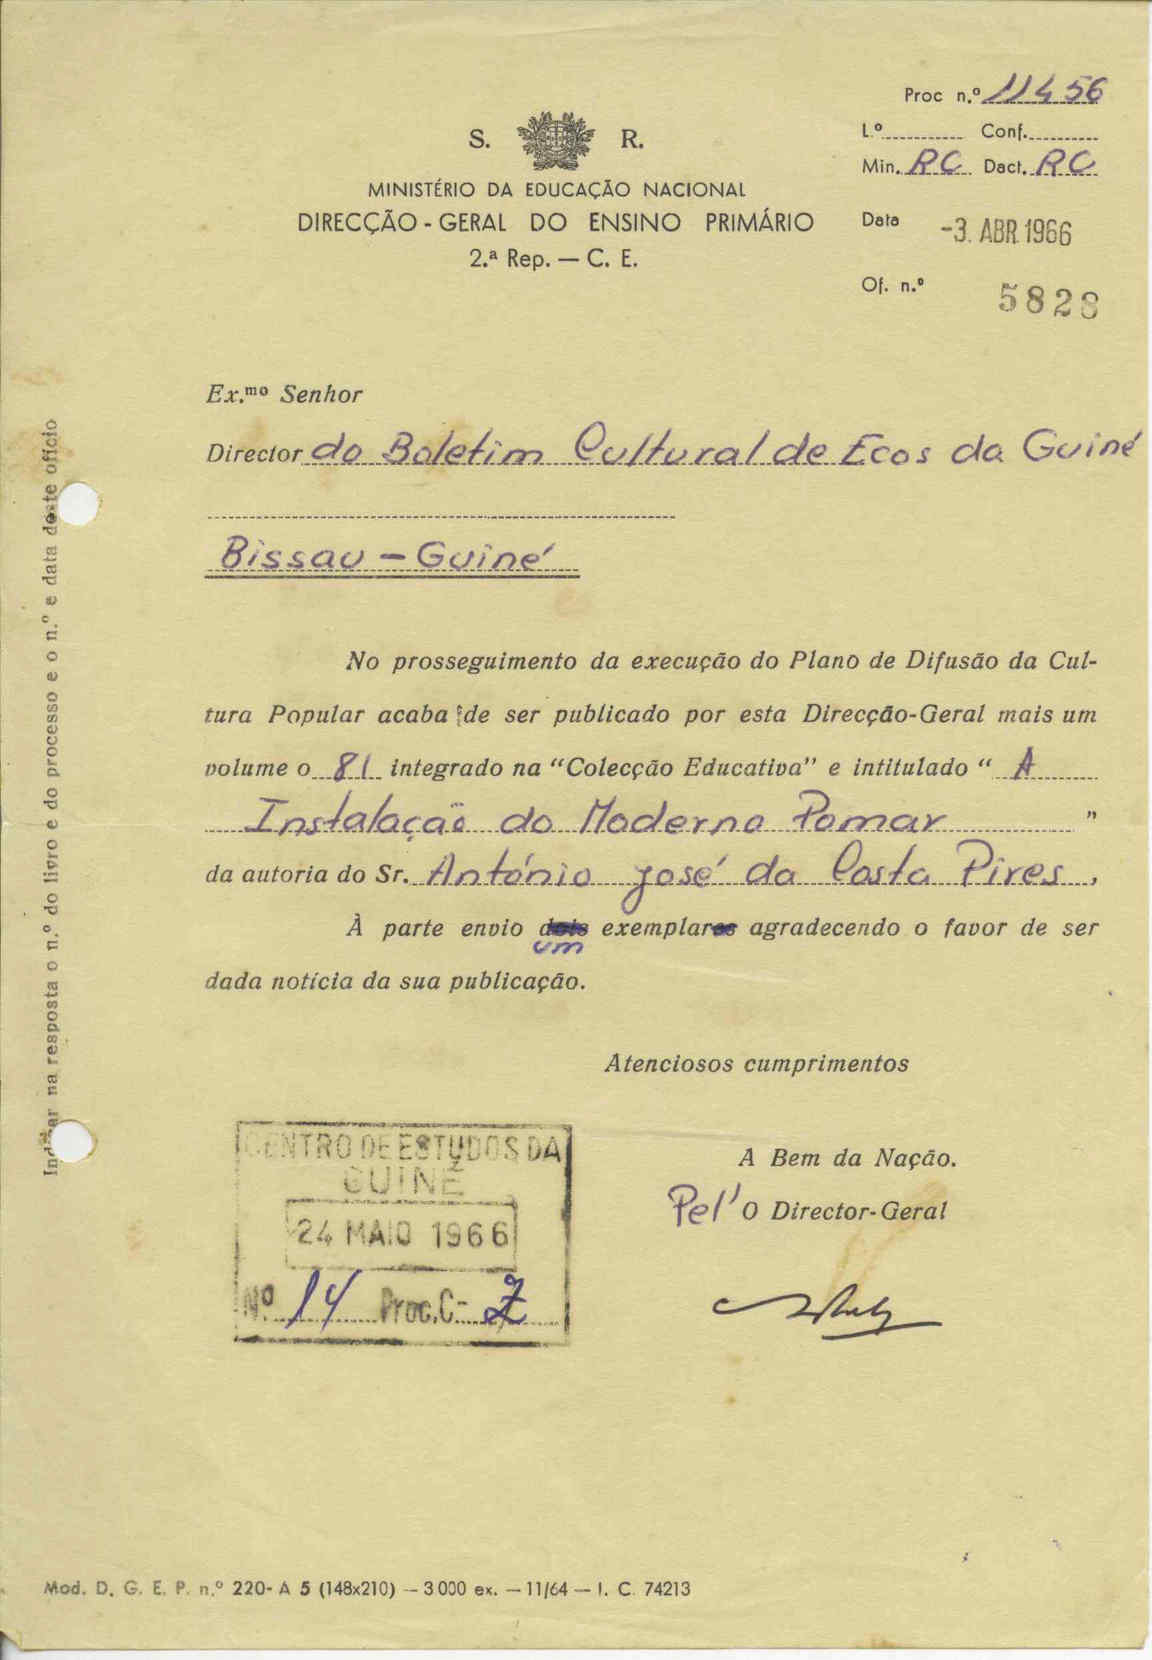 Proc n.º 11456
S. R.
L.º Conf.
Min. RC Dact. RC
MINISTÉRIO DA EDUCAÇÃO NACIONAL
DIRECÇÃO-GERAL DO ENSINO PRIMÁRIO
2.ª Rep. — C. E.
Data -3. ABR. 1966
Of. n.º 5828
Ex.mo Senhor
Director do Boletim Cultural de Ecos da Guiné
Bissau - Guiné
No prosseguimento da execução do Plano de Difusão da Cul-
tura Popular acaba de ser publicado por esta Direcção-Geral mais um
volume o 81 integrado na "Colecção Educativa" e intitulado " A
Instalação do Moderno Pomar "
da autoria do Sr. António José da Costa Pires,
À parte envio dois exemplares agradecendo o favor de ser
um
dada notícia da sua publicação.
Atenciosos cumprimentos
A Bem da Nação.
Pel' O Director-Geral
CENTRO DE ESTUDOS DA
GUINÉ
24 MAIO 1966
Nº 14 Proc. C- Z
Indicar na resposta o n.º do livro e do processo e o n.º e data deste ofício
Mod. D. G. E. P. n.º 220- A 5 (148x210) — 3 000 ex. — 11/64 — I. C. 74213